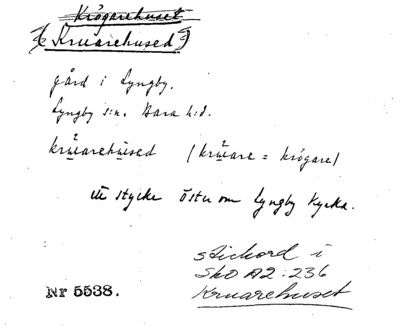 Krögarehuset
{Kruarehused}
gård i Lyngby.
Lyngby s:n. Bara h:d.
kruarehused (kruare = krögare)
ett stycke öster om Lyngby kyrka.
stickord i
SkO A2:236
Kruarehuset
Nr 5538.